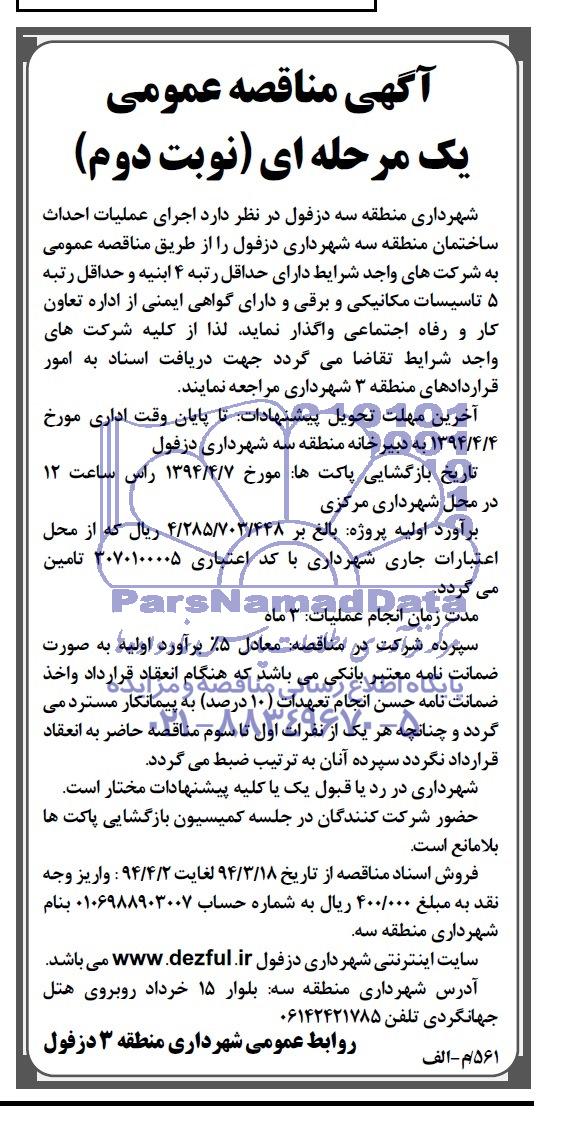 آگهی مناقصه عمومی
یک مرحله ای (نوبت دوم)
شهرداری منطقه سه دزفول در نظر دارد اجرای عملیات احداث
ساختمان منطقه سه شهرداری دزفول را از طریق مناقصه عمومی
به شرکت های واجد شرایط دارای حداقل رتبه ۴ ابنیه و حداقل رتبه
۵ تاسیسات مکانیکی و برقی و دارای گواهی ایمنی از اداره تعاون
کار و رفاه اجتماعی واگذار نماید، لذا از کلیه شرکت های
واجد شرایط تقاضا می گردد جهت دریافت اسناد به امور
قراردادهای منطقه ۳ شهرداری مراجعه نمایند.
آخرین مهلت تحویل پیشنهادات: تا پایان وقت اداری مورخ
۱۳۹۴/۴/۴ به دبیرخانه منطقه سه شهرداری دزفول
تاریخ بازگشایی پاکت ها: مورخ ۱۳۹۴/۴/۷ راس ساعت ۱۲
در محل شهرداری مرکزی
برآورد اولیه پروژه: بالغ بر ۴/۲۸۵/۷۰۳/۴۴۸ ریال که از محل
اعتبارات جاری شهرداری با کد اعتباری ۳۰۷۰۱۰۰۰۰۵ تامین
می گردد.
ParsNamadData
مدت زمان انجام عملیات: ۳ ماه
سپرده شرکت در مناقصه: معادل ۵٪ برآورد اولیه به صورت
ضمانت نامه معتبر بانکی می باشد که هنگام انعقاد قرارداد واخذ
پایگاه اطلاع رسانی مناقصه و مزایده
ضمانت نامه حسن انجام تعهدات (۱۰ درصد) به پیمانکار مسترد می
۰۲۱-۸۸۳۴۹۶۷۰-۵
گردد و چنانچه هر یک از نفرات اول تا سوم مناقصه حاضر به انعقاد
قرارداد نگردد سپرده آنان به ترتیب ضبط می گردد.
شهرداری در رد یا قبول یک یا کلیه پیشنهادات مختار است.
حضور شرکت کنندگان در جلسه کمیسیون بازگشایی پاکت ها
بلامانع است.
فروش اسناد مناقصه از تاریخ ۹۴/۳/۱۸ لغایت ۹۴/۴/۲ : واریز وجه
نقد به مبلغ ۴۰۰/۰۰۰ ریال به شماره حساب ۰۱۰۶۹۸۸۹۰۳۰۰۷ بنام
شهرداری منطقه سه.
سایت اینترنتی شهرداری دزفول www.dezful.ir می باشد.
آدرس شهرداری منطقه سه: بلوار ۱۵ خرداد روبروی هتل
جهانگردی تلفن ۰۶۱۴۲۴۲۱۷۸۵
روابط عمومی شهرداری منطقه ۳ دزفول
۵۶۱/م-الف